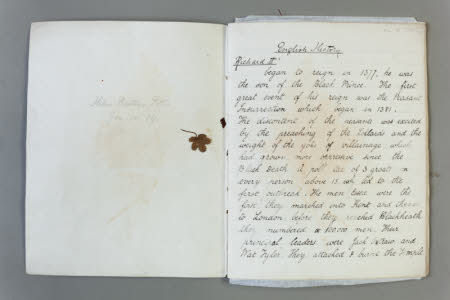 English History
Richard II
began to reign in 1377, he was
the son of the Black Prince. The first
great event of his reign was the Peasant
Insurrection which began in 1381.
The discontent of the peasants was excited
by the preaching of the Lollards and the
weight of the yoke of villainage which
had grown more oppressive since the
Black Death. A poll tax of 3 groats on
every person above 15 led to the
first outbreak. The men Essex were the
first they marched into Kent and thence
to London, before they reached Blackheath
they numbered 100,000 men. Their
principal leaders were Jack Straw and
Wat Tyler. They attacked & burnt the Temple,